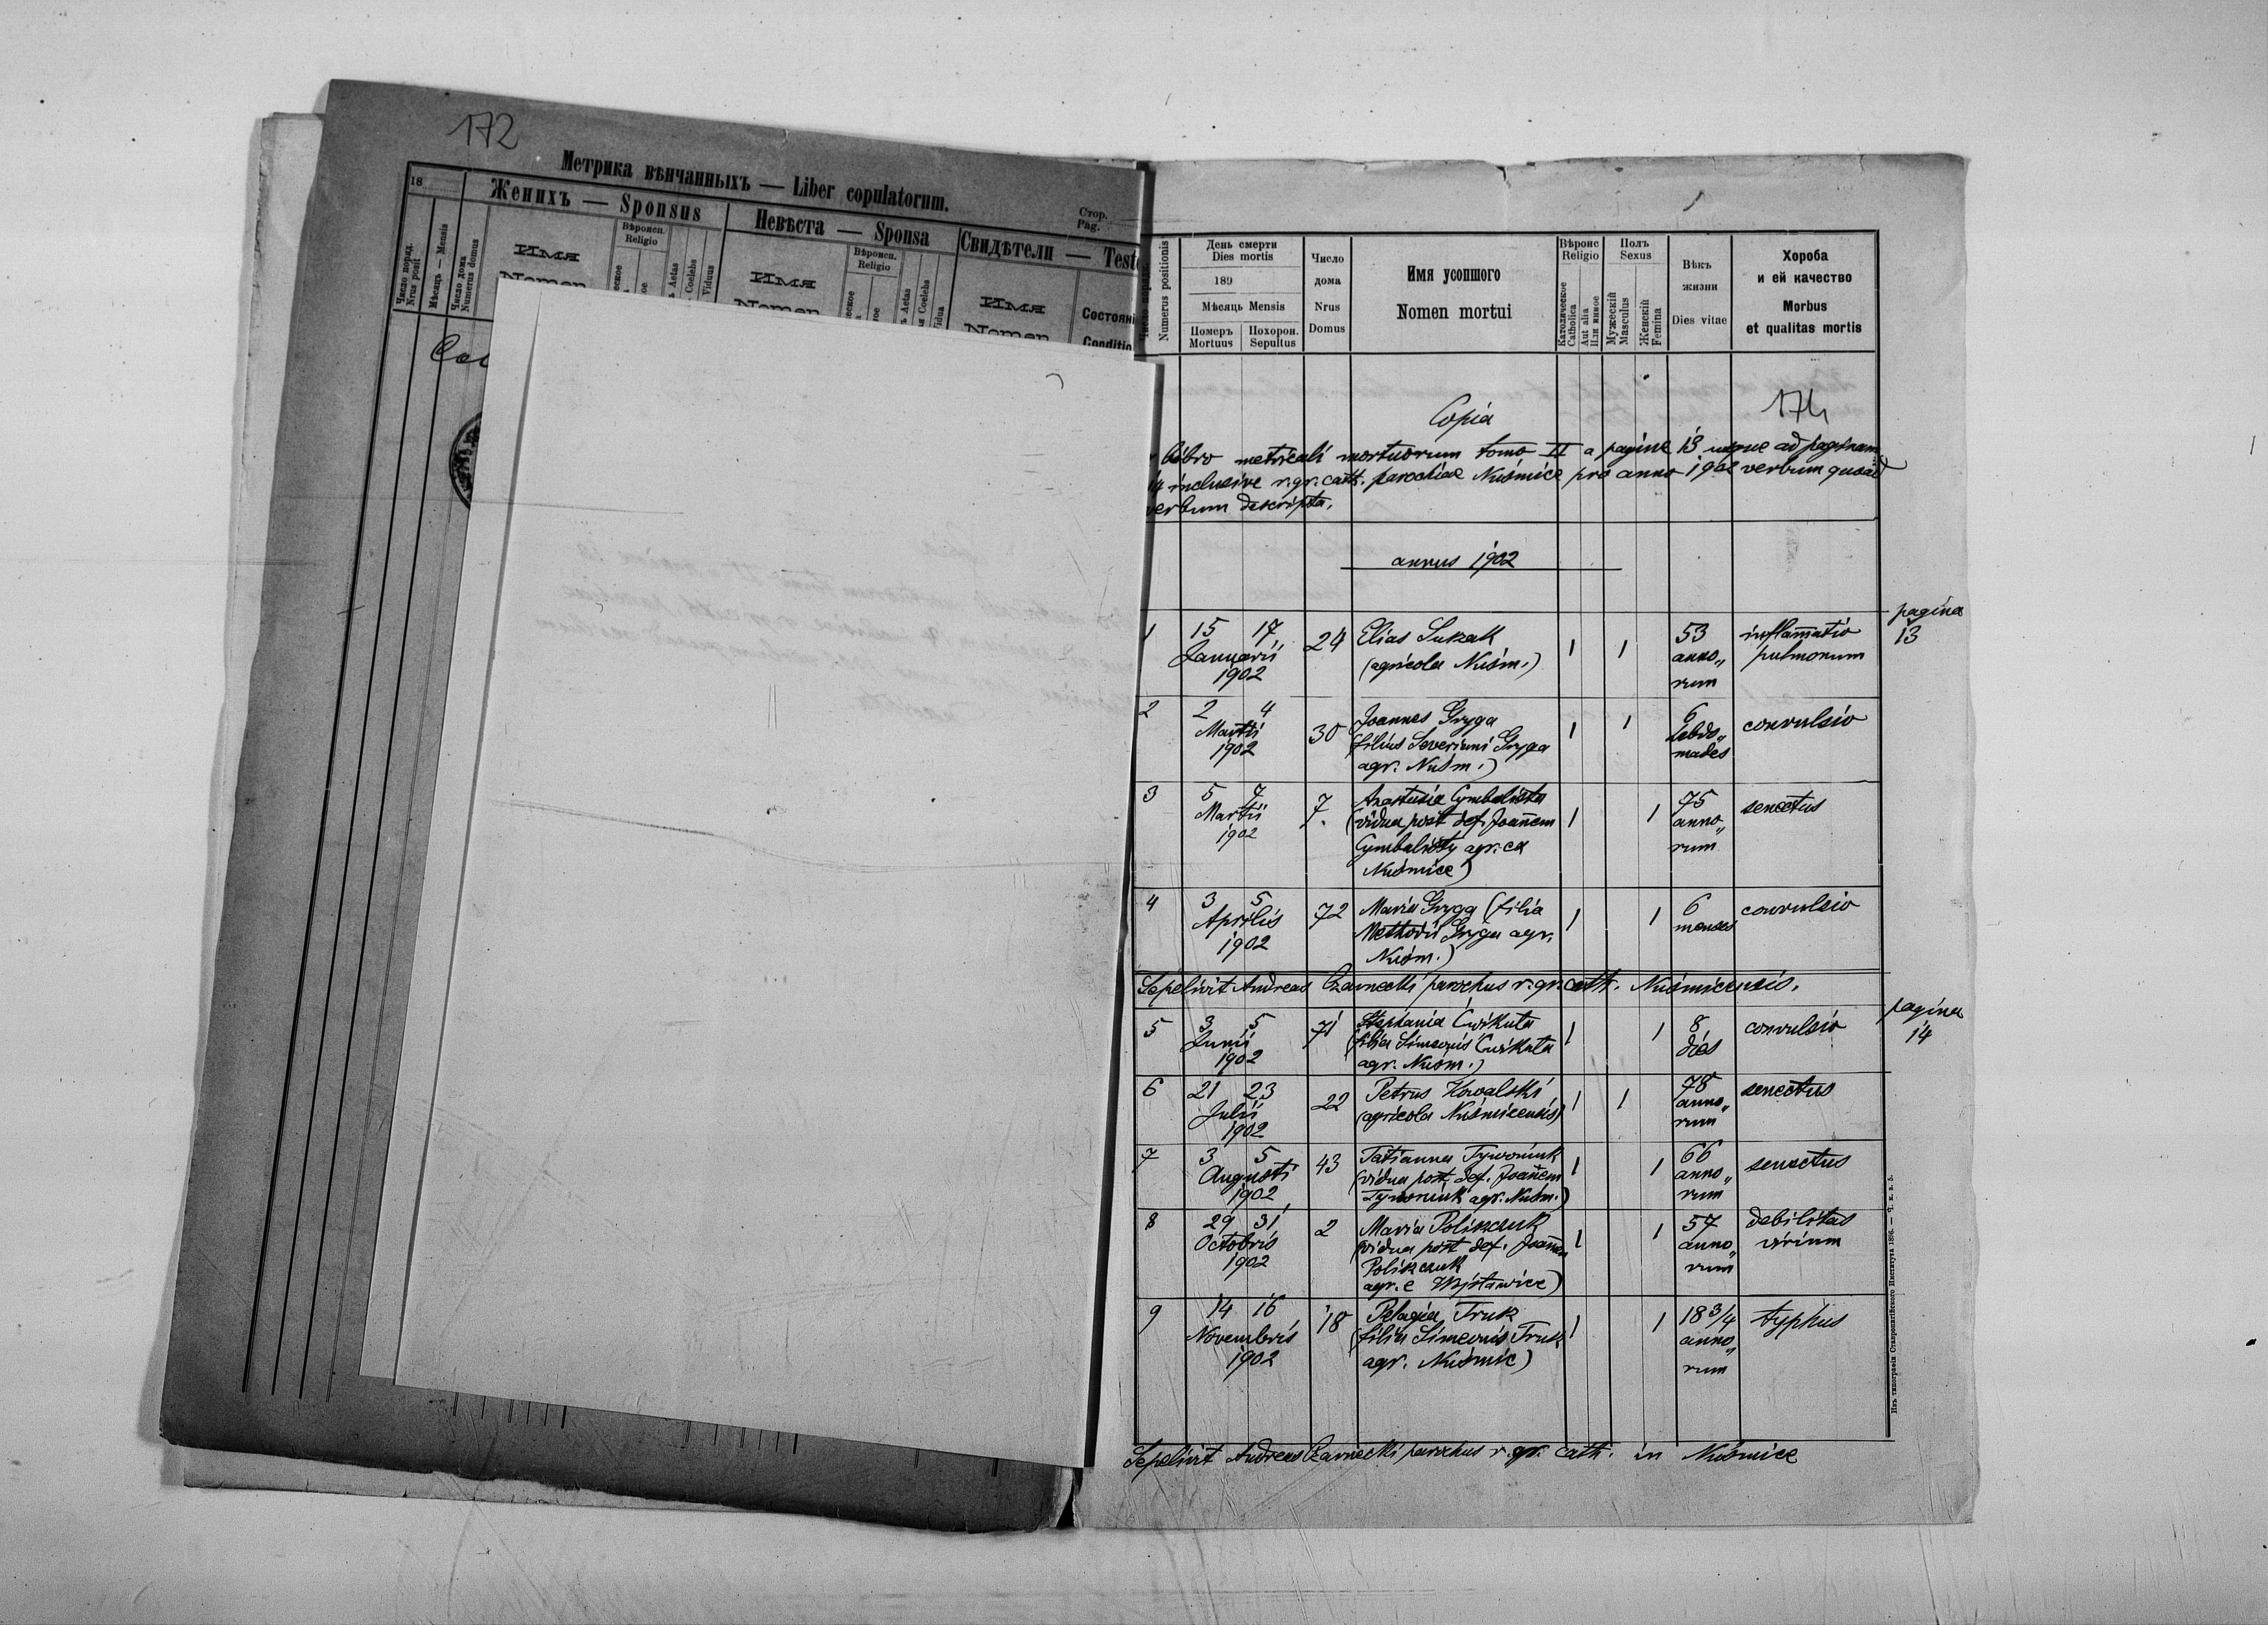 172
Метрика вѣнчанныхъ — Liber copulatorum.
Стор.
Pag.
18
Женихъ — Sponsus
Невѣста — Sponsa
Свидѣтели — Test
Число поряд.
Nrus posit
Мѣсяцъ — Mensis
Число дома
Numerus domus
Имя
Nomen
Вѣроисп.
Religio
Aetas
Coelebs
Viduus
Имя
Nomen
Вѣроисп.
Religio
Aetas
Coelebs
Vidua
Имя
Nomen
Состоян
Conditio
Numerus positionis
День смерти
Dies mortis
189
Мѣсяцъ Mensis
Померъ
Mortuus
Похорон.
Sepultus
Число
дома
Nrus
Domus
Имя усопшого
Nomen mortui
Вѣроис
Religio
Католическое
Catholica
Aut alia
Или иное
Полъ
Sexus
Мужескій
Masculus
Женскій
Femina
Вѣкъ
жизни
Dies vitae
Хороба
и ей качество
Morbus
et qualitas mortis
174
Copia
Libro metricali mortuorum tomo II a pagina 13 usque ad paginam
14 inclusive r. gr. cath. parochiae Nuśmice pro anno 1902 verbum quoad
verbum descripta.
annus 1902
pagina
13
1 15 17 24 Elias Sukak 1 1 53 inflammatio
Januarii (agricola Nuśm.) anno„ pulmonum
1902 rum
2 2 4 30 Joannes Gryga 1 1 6 convulsio
Martii (filius Severiani Gryga hebdo„
1902 agr. Nuśm.) mades
3 5 7 7. Anastasia Cymbalista 1 1 75 senectus
Martii (vidua post def. Joannem anno„
1902 Cymbalisty agr. ex rum
Nuśmice)
4 3 5 72 Maria Gryga (filia 1 1 6 convulsio
Aprilis Methodii Gryga agr. menses
1902 Nuśm.)
Sepelivit Andreas Czarnecki parochus r. gr. cath. Nuśmicensis.
pagina
14
5 3 5 71 Stephania Ćwikuła 1 1 8 convulsio
Junii (filia Simeonis Ćwikuła dies
1902 agr. Nuśm.)
6 21 23 22 Petrus Kowalski 1 1 78 senectus
Julii (agricola Nuśmicensis) anno„
1902 rum
7 3 5 43 Tatianna Tywoniuk 1 1 66 senectus
Augusti (vidua post def. Joannem anno„
1902 Tywoniuk agr. Nuśm.) rum
8 29 31 2 Maria Poliszczuk 1 1 57 debilitas
Octobris (vidua post def. Joannem anno„ virium
1902 Poliszczuk rum
agr. e Wojsławice)
9 14 16 18 Pelagia Truk 1 1 18 3/4 typhus
Novembris (filia Simeonis Truk anno„
1902 agr. Nuśmic) rum
Sepelivit Andreas Czarnecki parochus r. gr. cath. in Nuśmice
Изъ типографіи Ставропигійского Института 1896. — Ч. к. в. 5.